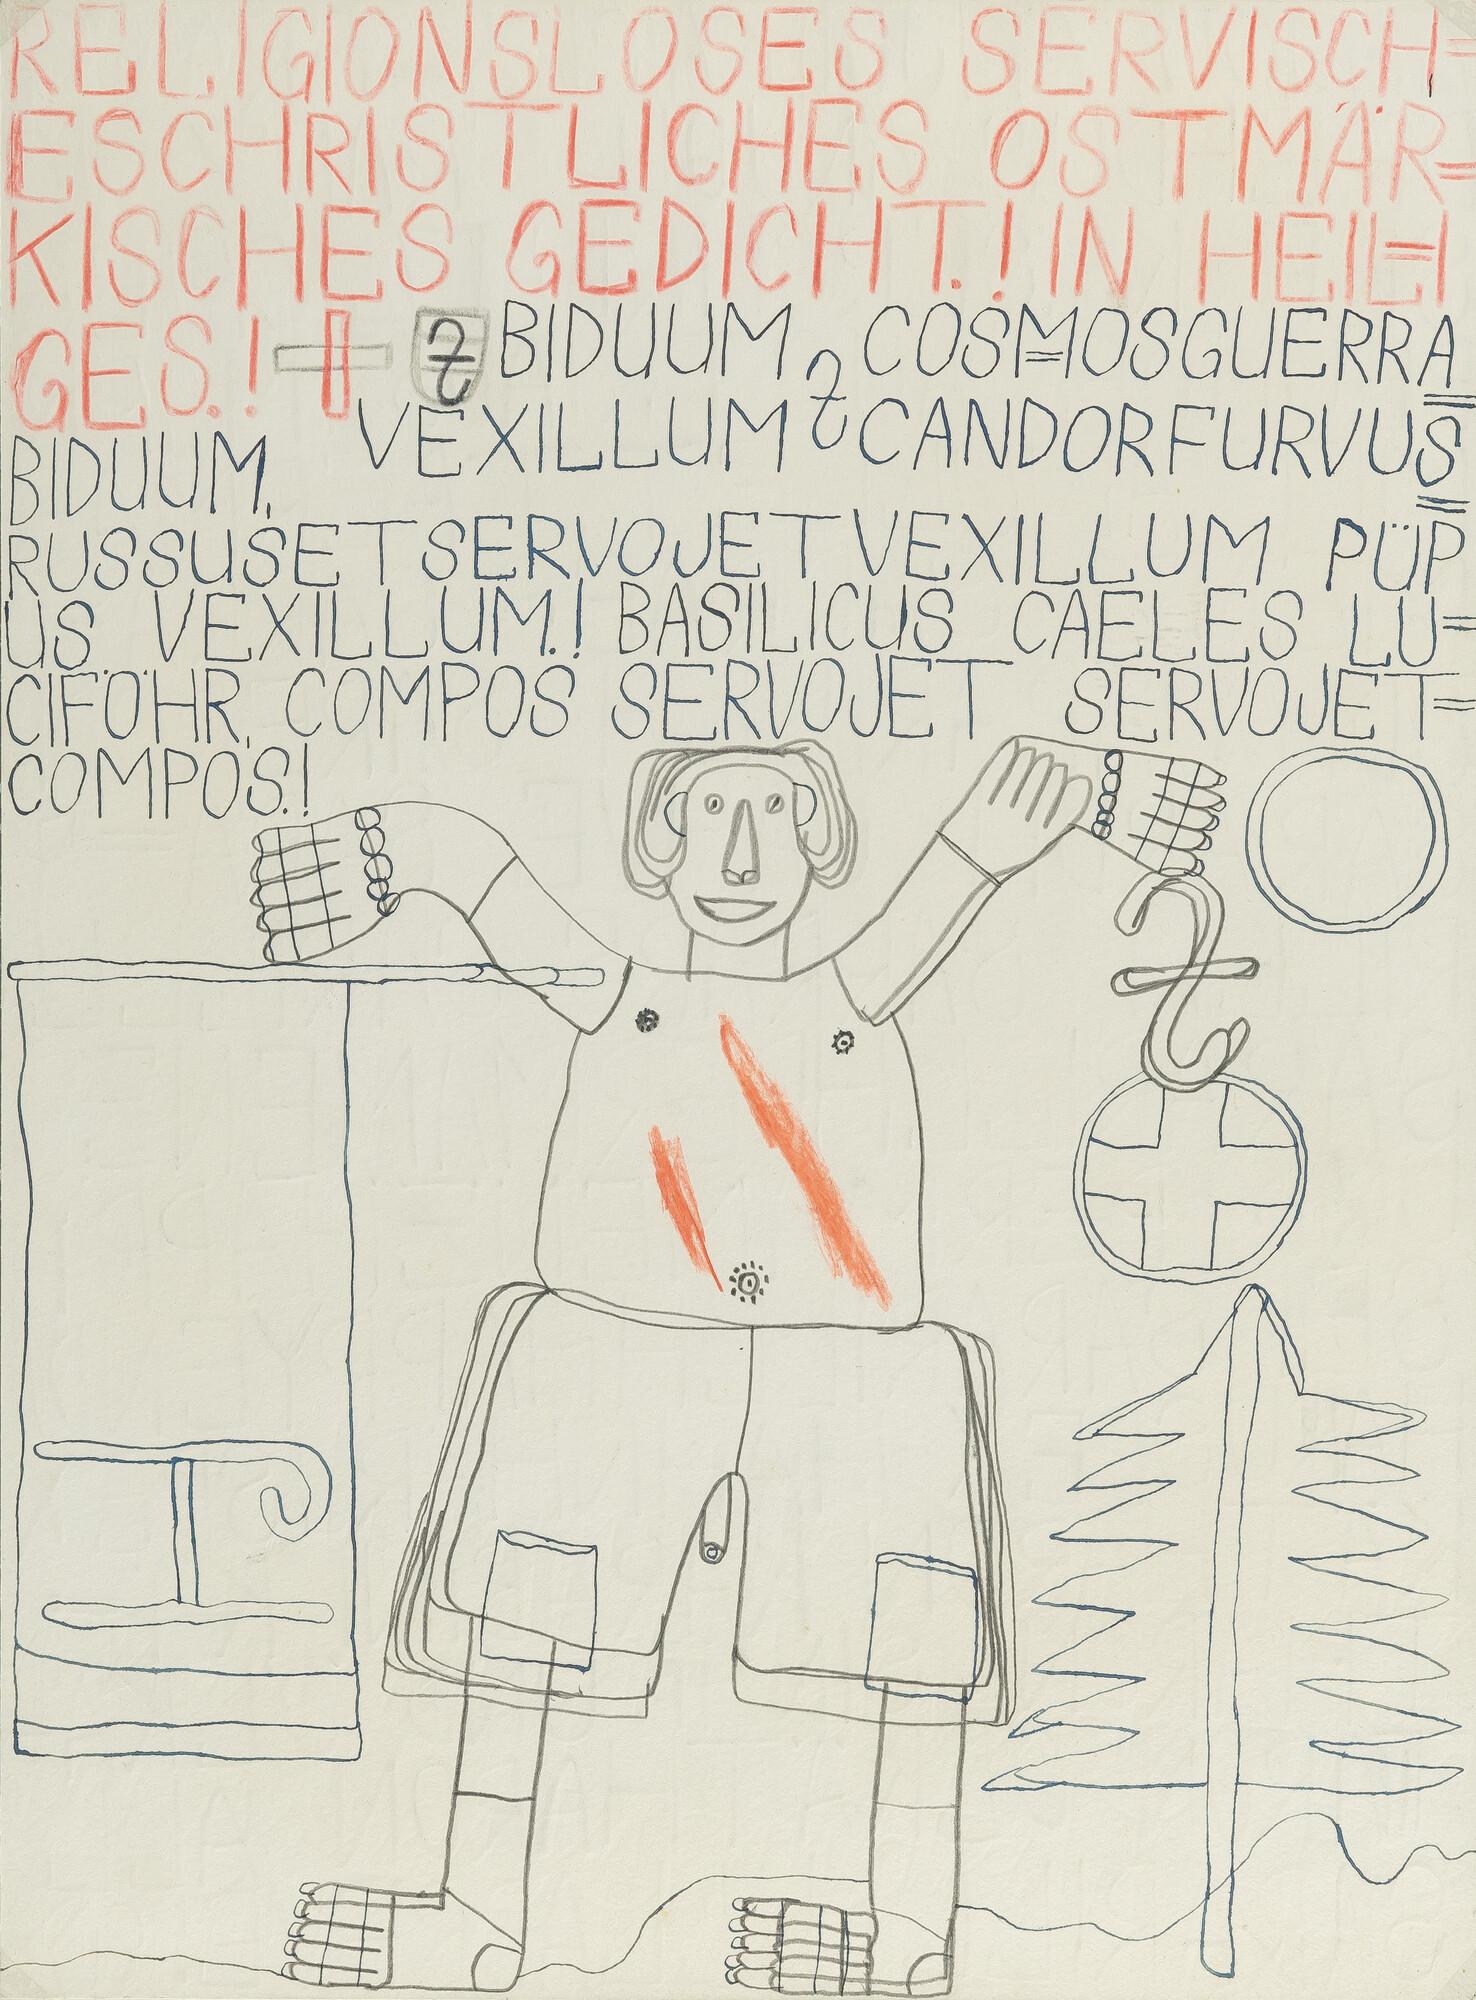 RELIGIONSLOSES SERVISCH=
ESCHRISTLICHES OSTMÄR=
KISCHES GEDICHT.! IN HEILI=
GES.! BIDUUM COSMOSGUERRA
VEXILLUM CANDORFURVUS
BIDUUM,
RUSSUSETSERVOJETVEXILLUM PÜP
US VEXILLUM.! BASILICUS CAELES LU=
CIFÖHR, COMPOS SERVOJET SERVOJET=
COMPOS.!